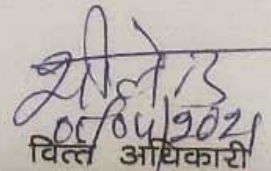 05/04/2021
वित्त अधिकारी